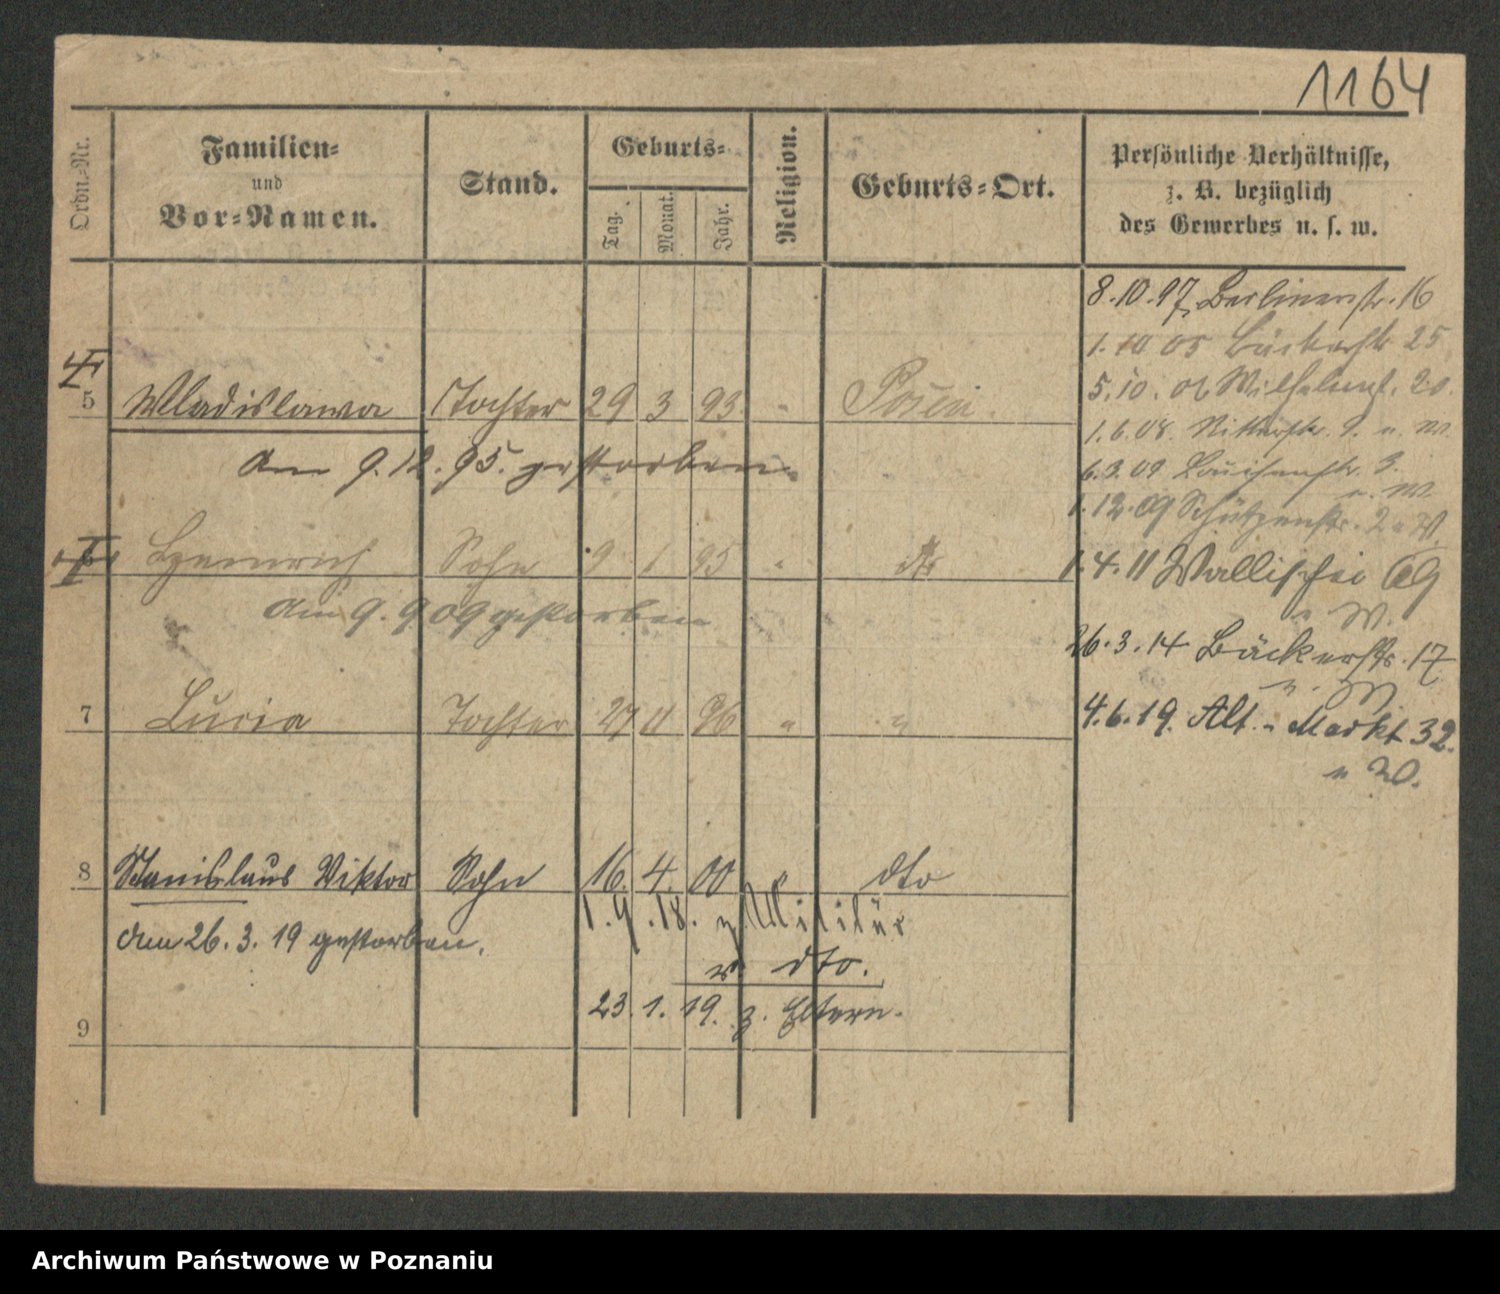 1164
Ordn.-Nr.
Familien-
und
Vor-Namen.
Stand.
Geburts-
Tag.
Monat.
Jahr.
Religion.
Geburts-Ort.
Persönliche Verhältnisse,
z. B. bezüglich
des Gewerbes u. s. w.
8.10.97 Berlinerstr. 16
1.10 05 Bäckerstr 25
5 Wladislawa Tochter 29 3 93 " Posen.
5.10. 06 Wilhelmst. 20.
am 9.12.95. gestorben
1.6.08. Ritterstr. 9. u. W.
6.9.09 Louisenstr. 3.
u. W.
1.12.09 Schützenstr. 2 u W.
6 Heinrich Sohn 9 1 95 " dto
am 9.9 09 gestorben
1.4.11 Wallischei 69
u W.
26.3.14 Bäckerstr. 17
u. W
7 Lucia Tochter 27 11 96 " "
4.6.19. Alt. - Markt 32.
u W.
8 Stanislaus Viktor Sohn 16. 4. 00 dto
1.9.18. z. Militär
am 26.3.19 gestorben.
v. dto.
23.1.19. z. Eltern.
9
Archiwum Państwowe w Poznaniu